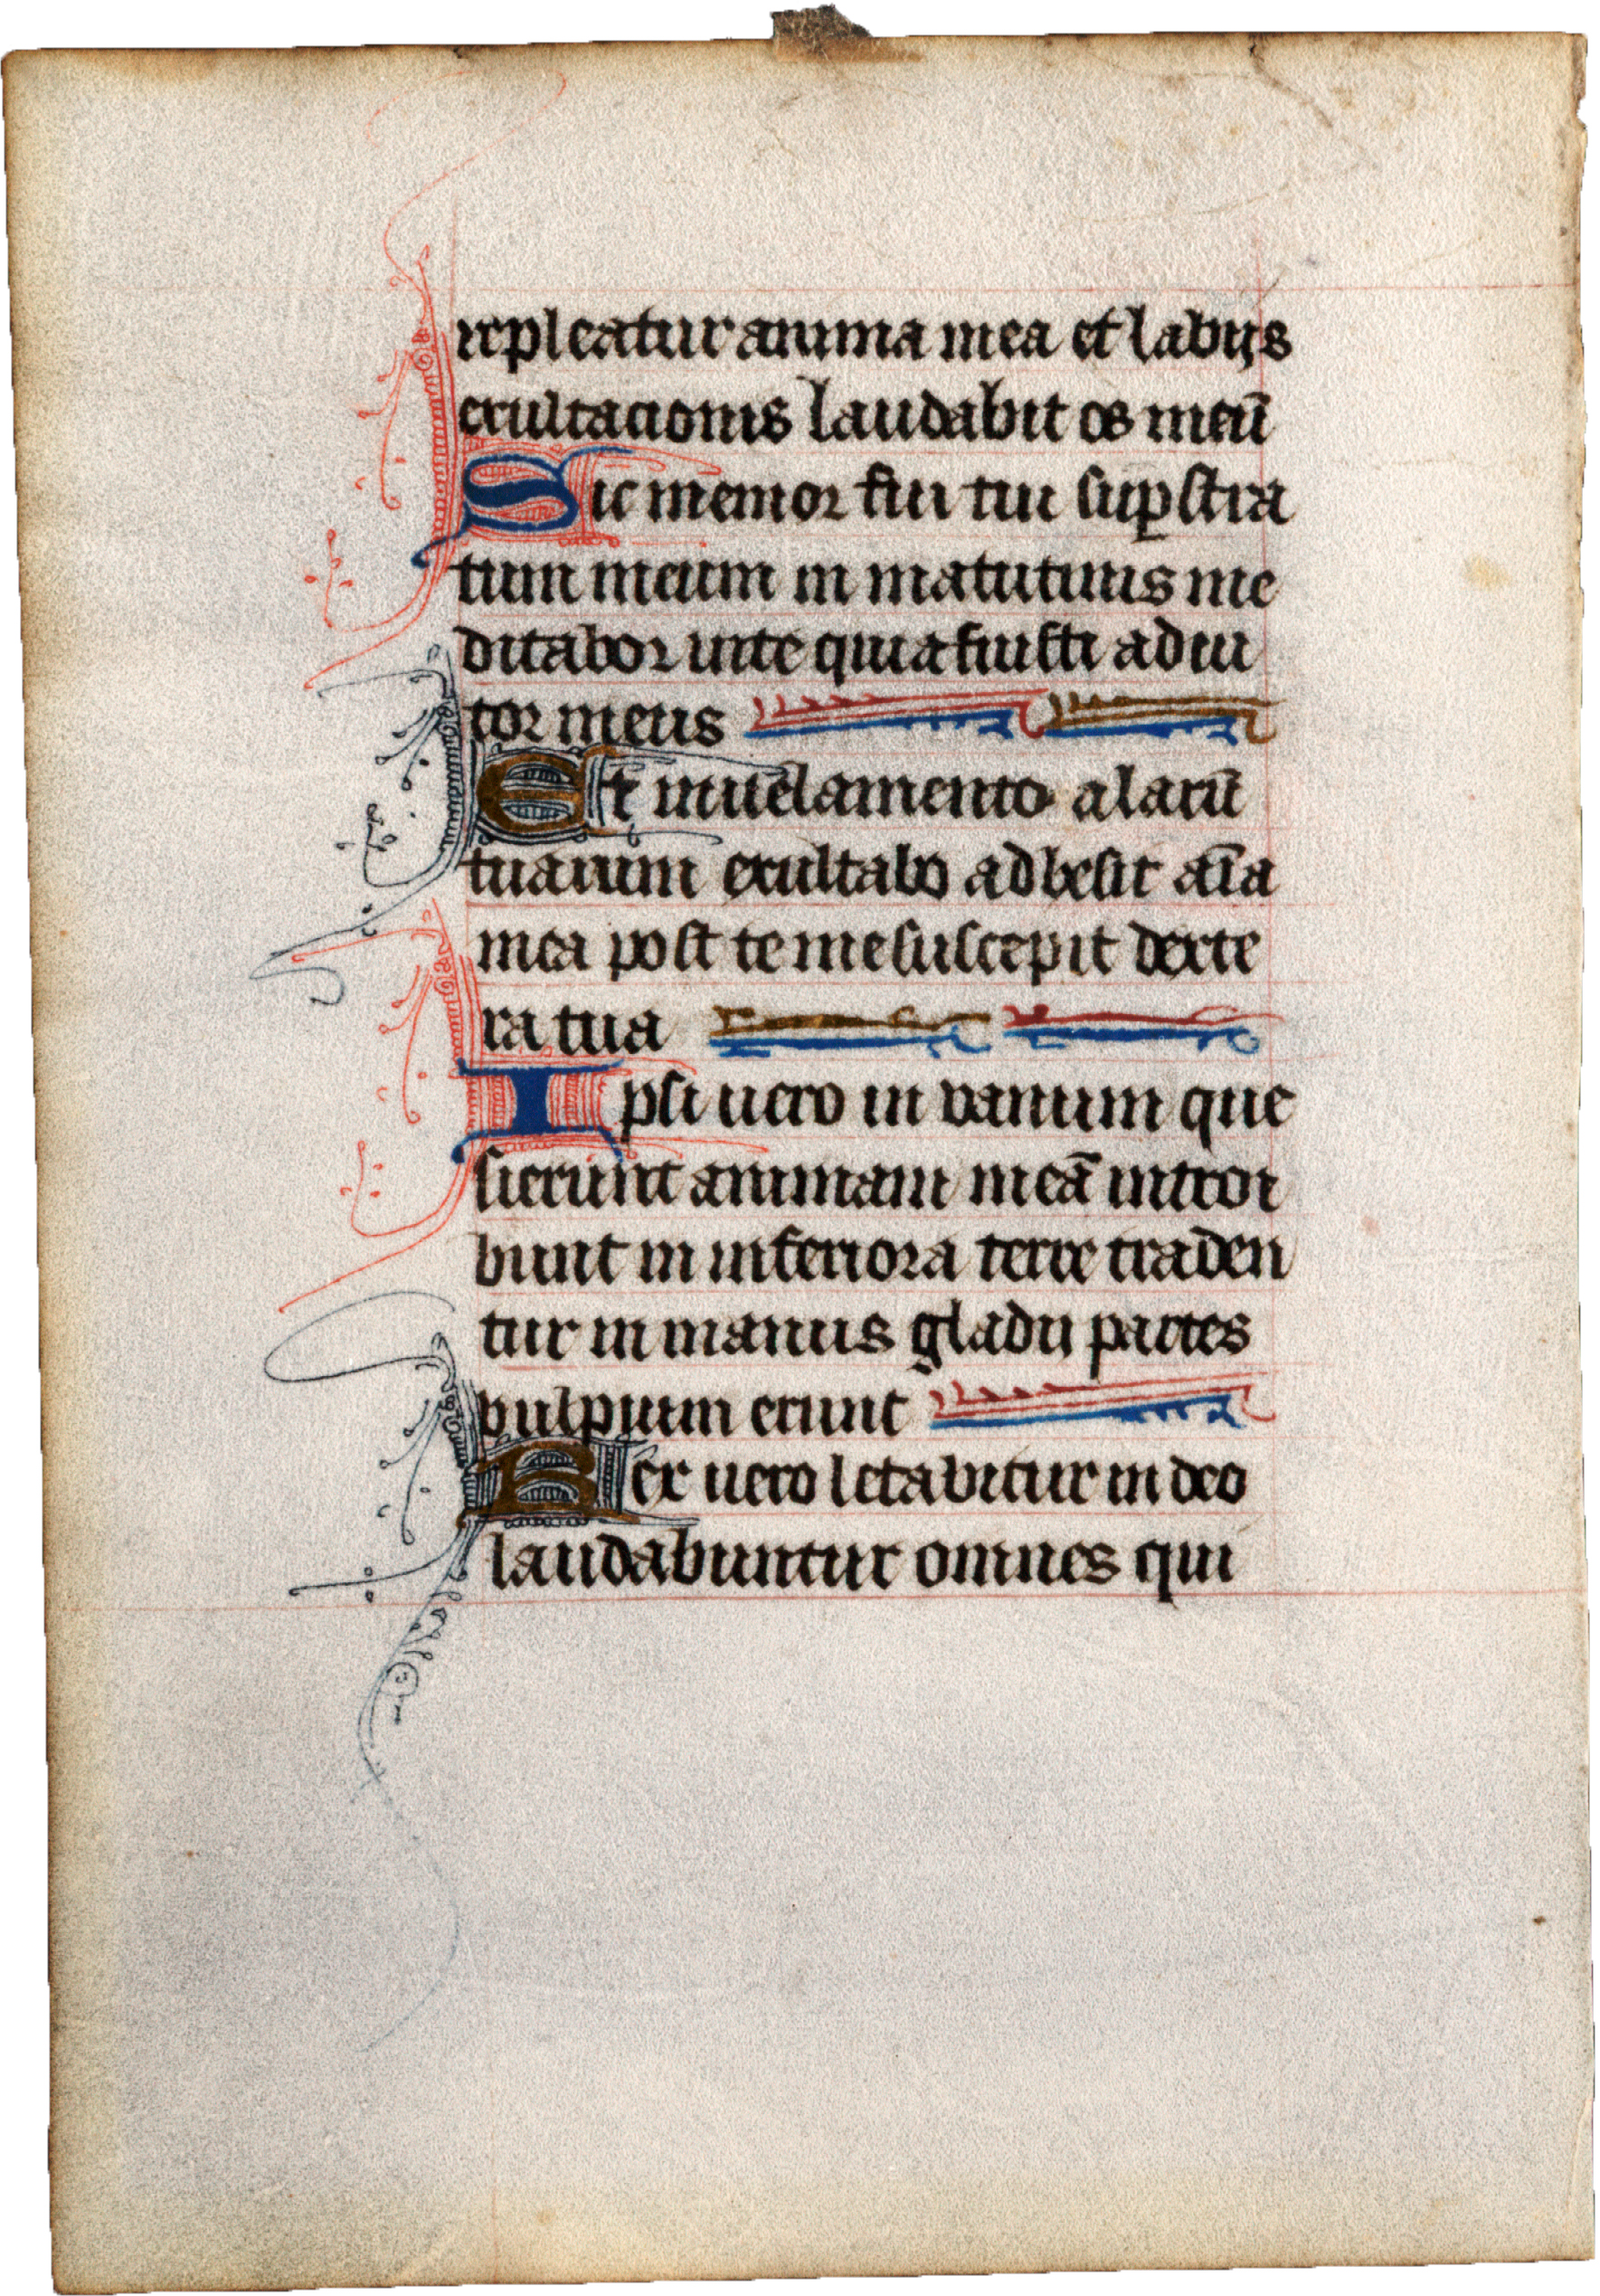 repleatur anima mea et labijs
exultacionis laudabit os meū
Sic memor fui tui suꝑ stra
tum meum in matutinis me
ditabor in te quia fuisti adiu
tor meus
Et in uelamento alarū
tuarum exultabo adhesit aīa
mea post te me suscepit dexte
ra tua
Ipsi uero in vanum que
sierunt animam meā introi
bunt in inferiora terre traden
tur in manus gladii partes
vulpium erunt
Rex uero letabitur in deo
laudabuntur omnes qui